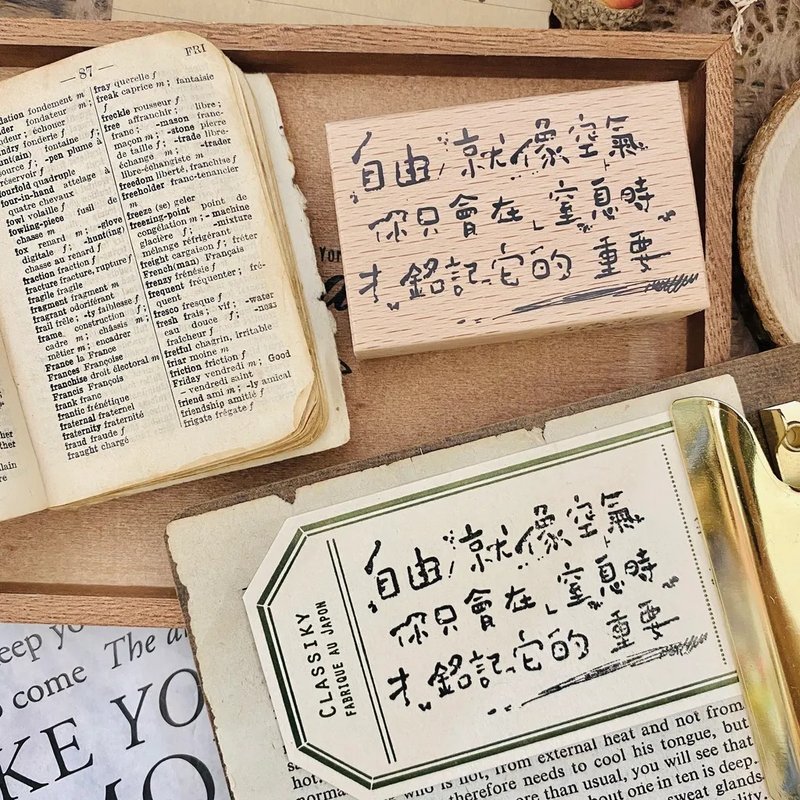 — 87 —
FRI
fondement m
fray querelle f
freak caprice m; fantaisie
f
freckle rousseur f
free affranchir; libre;
-mason franc-
maçon m; -stone pierre
de taille f; -trade libre-
échange m; -trader
libre-échangiste m
freedom liberté, franchise f
freeholder franc-tenancier
m
freeze (se) geler
freezing-point point de
congélation m; -machine
glacière f; -mixture
mélange réfrigérant
freight cargaison f; fréter
French(man) Français
frenzy frénésie f
frequent fréquenter; fré-
quent
fresco fresque f
fresh frais; vif; -water
eau douce f;
fraîcheur f
fretful chagrin, irritable
friar moine m
friction friction f
Friday vendredi m; Good
- vendredi saint
friend ami m; -ly amical
friendship amitié f
frigate frégate f
fourfold quadruple
four-in-hand attelage à
quatre chevaux
fowl volaille f
fowling-piece fusil de
chasse m
fox renard m; -glove
digitale f; -hunt(ing)
chasse au renard f
fraction fraction f
fracture fracture, rupture f
fragile fragile
fragment fragment m
fragrant odoriférant
frail frêle; -ty faiblesse f
frame construction f;
cadre m; châssis m;
métier m; encadrer
France la France
Frances Françoise
franchise droit électoral m
Francis François
frank franc
frantic frénétique
fraternal fraternel
fraternity fraternité
fraud fraude f
fraught chargé
自由,就像空氣
你只會在「窒息時」
才銘記它的 重要
CLASSIKY
FABRIQUE AU JAPON
自由,就像空氣
你只會在「窒息時」
才銘記它的 重要
The
come
KE YO
MO
from external heat and not from
therefore needs to cool his tongue, but
more than usual, you will see that
about one in ten is deep.
sweat glands